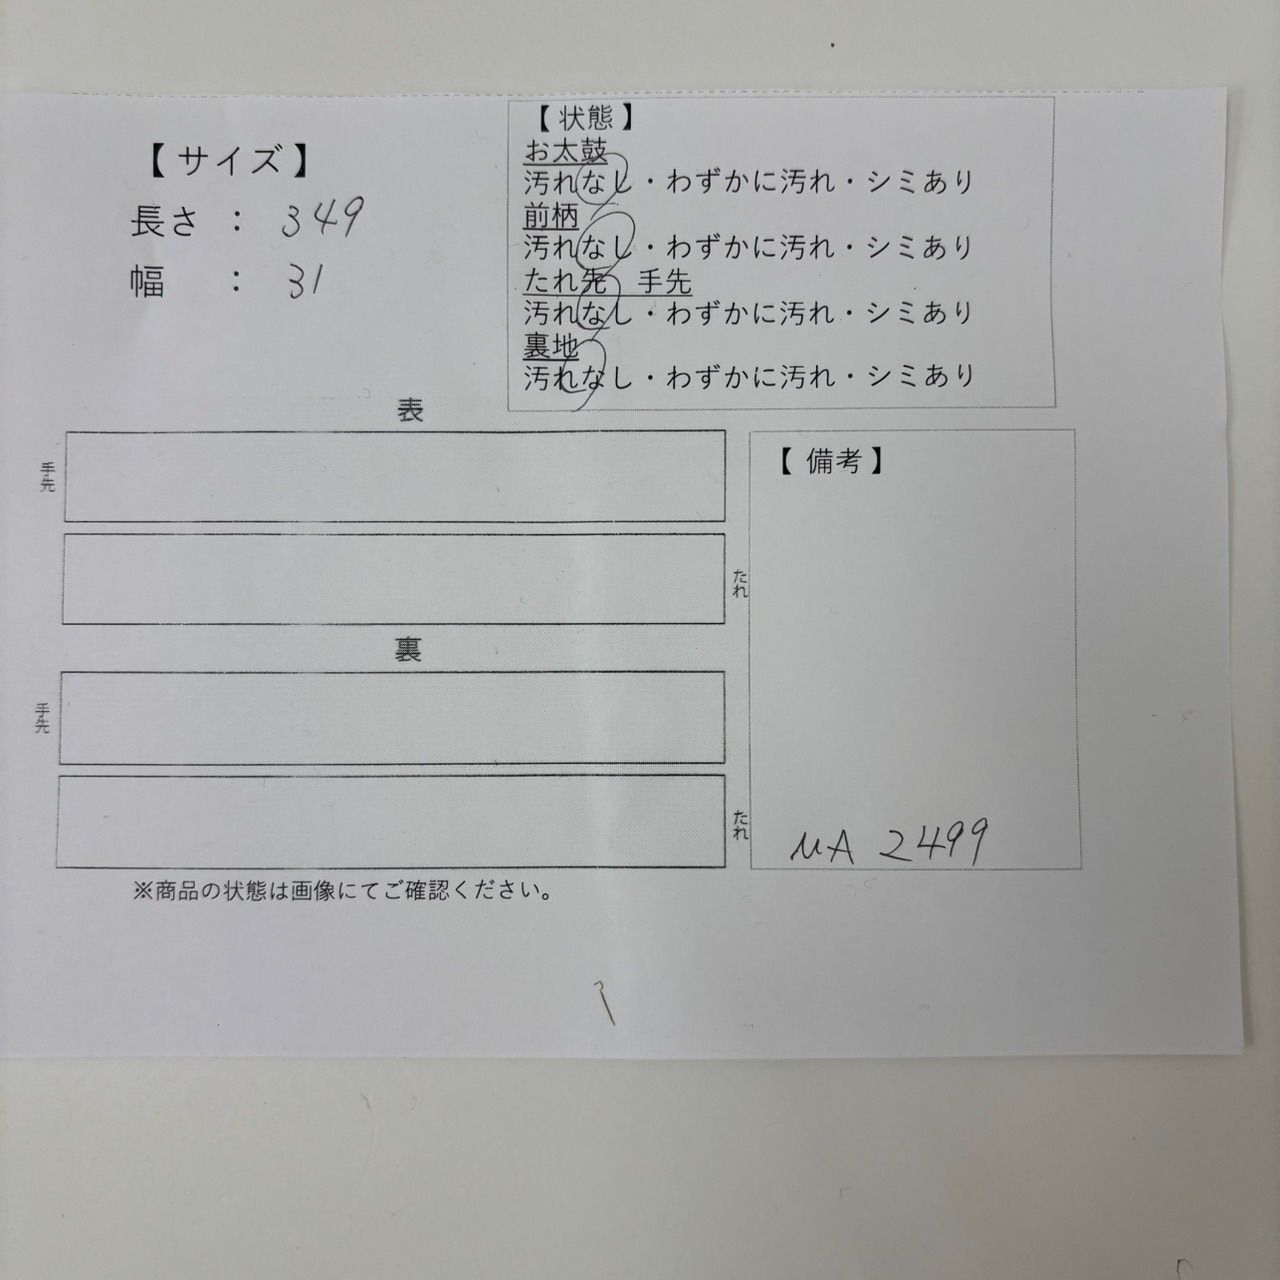 【 サイズ 】
長さ ： 349
幅 ： 31
【 状態 】
お太鼓
汚れなし・わずかに汚れ・シミあり
前柄
汚れなし・わずかに汚れ・シミあり
たれ先 手先
汚れなし・わずかに汚れ・シミあり
裏地
汚れなし・わずかに汚れ・シミあり
表
手先
たれ
裏
手先
たれ
【 備考 】
MA 2499
※商品の状態は画像にてご確認ください。